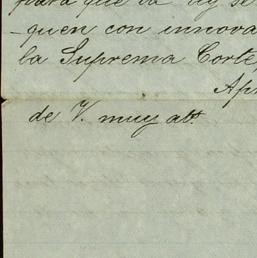 para que la ley se
-quen con innova
la Suprema Corte,
Apr
de V. muy atº